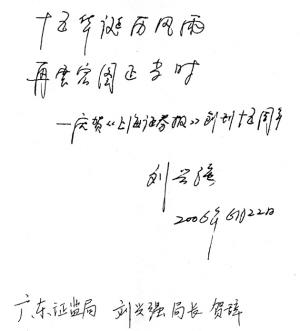 十五华诞历风雨
再展宏图正当时
—庆贺《上海证券报》创刊十五周年
刘兴强
2006年6月22日
广东证监局 刘兴强局长 贺辞